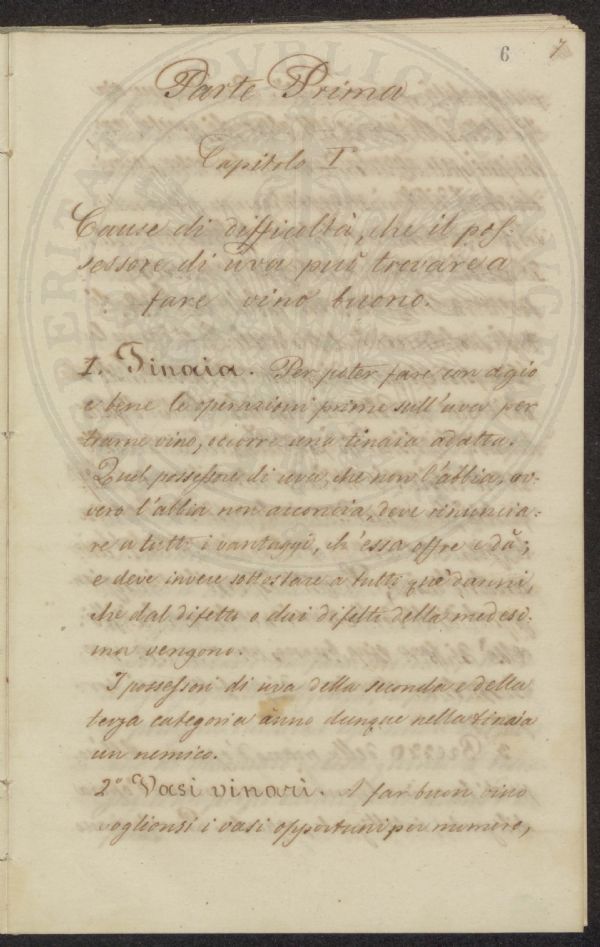 6 7
Parte Prima
Capitolo I°
Cause di difficoltà, che il pos-
sessore di uva può trovare a
fare vino buono.
1. Tinaia. Per poter fare con agio
e bene le operazioni prime sull'uva per
trarne vino, occorre una tinaia adatta.
Quel possessore di uva, che non l'abbia, ov-
vero l'abbia non acconcia, deve rinuncia-
re a tutti i vantaggi, ch'essa offre e dà;
e deve invece sottostare a tutti que' danni,
che dal difetto o dai difetti della medesi-
ma vengono.
I possessori di uva della seconda e della
terza categoria ànno dunque nella tinaia
un nemico.
2° Vasi vinari. A far buon vino
voglionsi i vasi opportuni per numero,